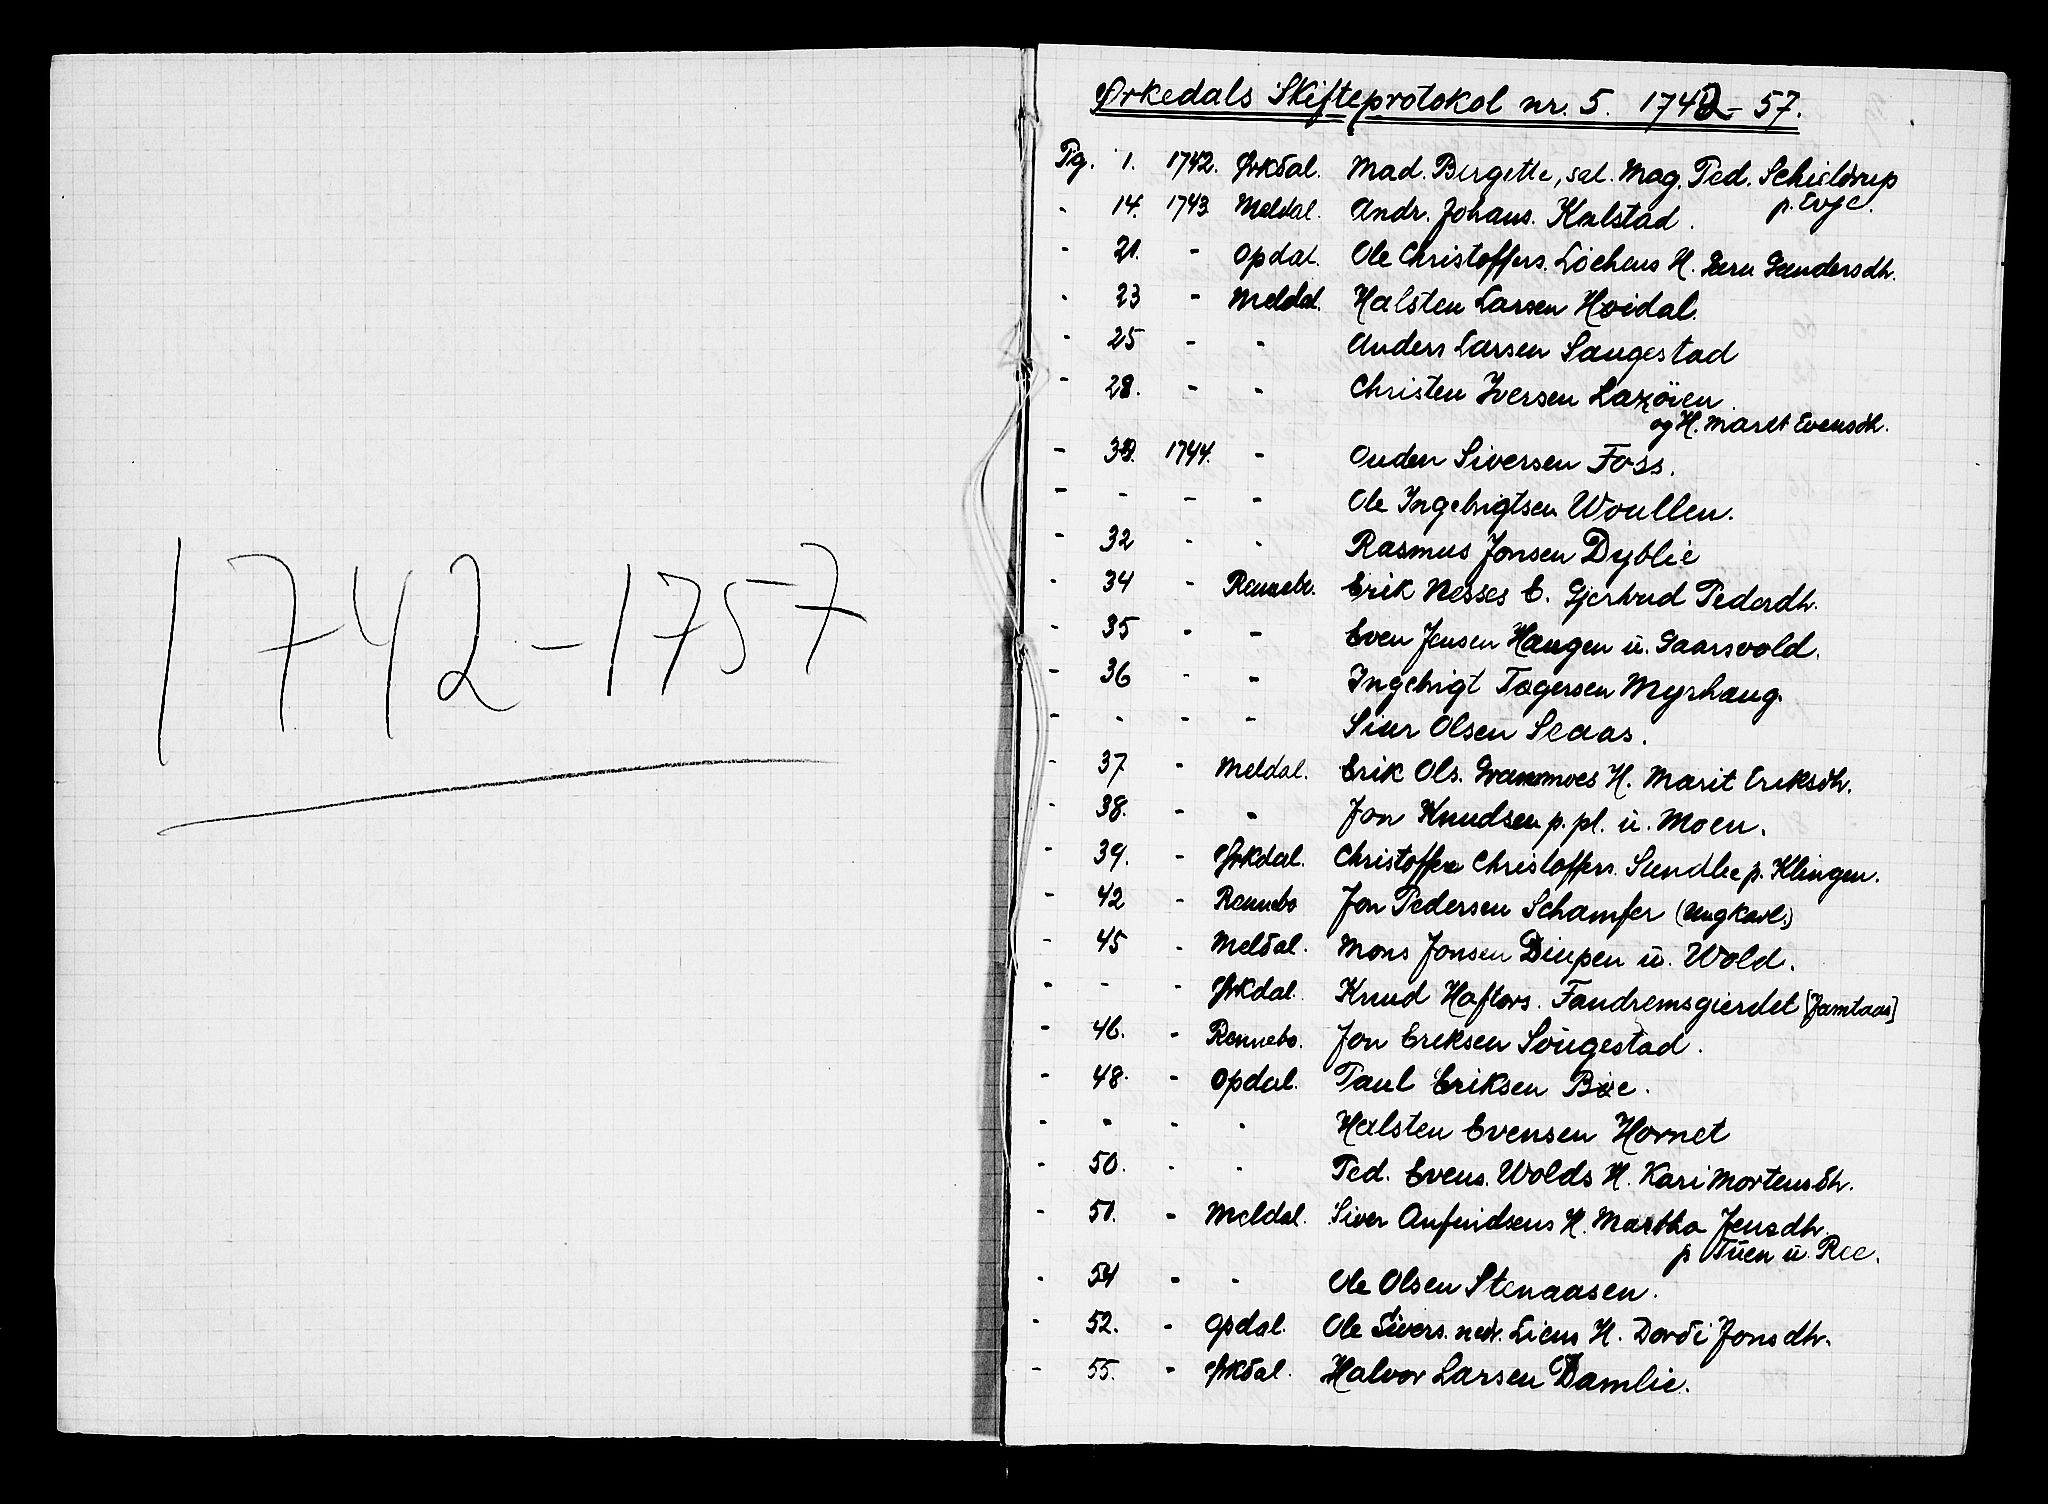 1742-1757
Ørkedals Skifteprotokol nr. 5. 1742-57.
Pg. 1. 1742. Ørkdal. Mad. Birgette, sal. Mag. Ped. Schieldrup
p. Evje.
- 14. 1743 Meldal. Andr. Johans. Kalstad.
- 21. - Opdal. Ole Christoffers. Löehens H. Guru Gundersdh.
- 23 - Meldal. Halsten Larsen Hoidal.
- 25 - - Anders Larsen Saugestad
- 28. - - Christen Iversen Lazöien
og H. Marit Evensdh.
- 30. 1744. - Ouden Siversen Foss.
- - - - Ole Ingebrigtsen Woullen.
- 32 - - Rasmus Jonsen Dyblie
- 34 - Rennebr. Erik Nesses E. Gjertrud Pedersdh.
- 35 - - Even Jensen Haugen u. Gaarsvold.
- 36 - - Ingebrigt Tøgersen Myrhaug.
- - - - Siur Olsen Seaas.
- 37 - Meldal. Erik Ols. Granmoes H. Marit Eriksdh.
- 38. - - Jon Knudsen p. pl. u. Moen.
- 39. - Ørkdal. Christoffer Christoffers. Sundlie p. Klingen.
- 42 - Rennebo Jon Pedersen Schamfer (Ungkarl.)
- 45 - Meldal. Mons Jonsen Diupen u. Wold.
- - - Ørkdal. Knud Haftors. Fandremsgierdet [Jamtaas]
- 46. - Rennebo. Jon Eriksen Sougestad.
- 48. - Opdal. Paul Eriksen Böe.
- - - - Halsten Evensen Hornet
- 50. - - Ped. Evens. Wolds H. Kari Mortensdh.
- 51. - Meldal. Siver Anfindsens H. Martha Jensdh.
p Tuen u. Ree.
- 51 - - Ole Olsen Stenaasen.
- 52. - Opdal. Ole Sivers. nedr. Liens H. Dordi Jonsdh.
- 55. - Ørkdal. Halvor Larsen Damlie.